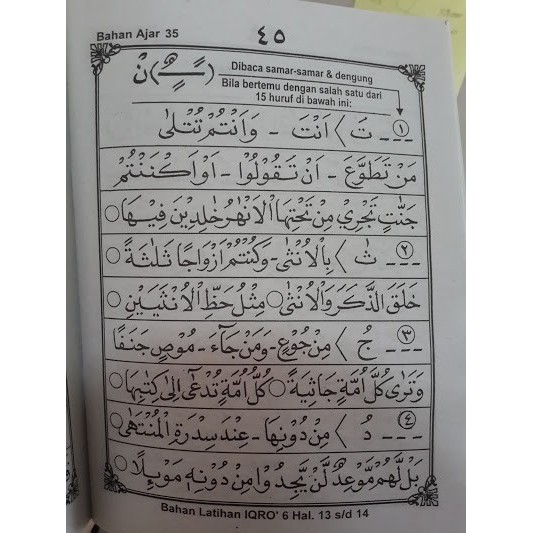 Bahan Ajar 35
٤٥
نْ (ـــًـــٍـــٌ)
Dibaca samar-samar & dengung
Bila bertemu dengan salah satu dari
15 huruf di bawah ini:
١ --- تَ ⟩ اَنْتَ - وَاَنْتُمْ تُتْلٰى
مَنْ تَطَوَّعَ - اَنْ تَقُوْلُوْا - اَوْ اَكْنَنْتُمْ
جَنّٰتٍ تَجْرِيْ مِنْ تَحْتِهَا الْاَنْهٰرُ خٰلِدِيْنَ فِيْهَا ○
٢ --- ثَ ⟩ بِالْاُنْثٰى - وَكُنْتُمْ اَزْوَاجًا ثَلٰثَةً ○
خَلَقَ الذَّكَرَ وَالْاُنْثٰى ○ مِثْلُ حَظِّ الْاُنْثَيَيْنِ ○
٣ --- جُ ⟩ مِنْ جُوْعٍ - وَمَنْ جَآءَ - مُوْصٍ جَنَفًا
وَتَرٰى كُلَّ اُمَّةٍ جَاثِيَةً ○ كُلُّ اُمَّةٍ تُدْعٰٓى اِلٰى كِتٰبِهَا ○
٤ --- دُ ⟩ مِنْ دُوْنِهَا - عِنْدَ سِدْرَةِ الْمُنْتَهٰى ○
بَلْ لَّهُمْ مَّوْعِدٌ لَّنْ يَّجِدُوْا مِنْ دُوْنِهٖ مَوْئِلًا ○
Bahan Latihan IQRO' 6 Hal. 13 s/d 14